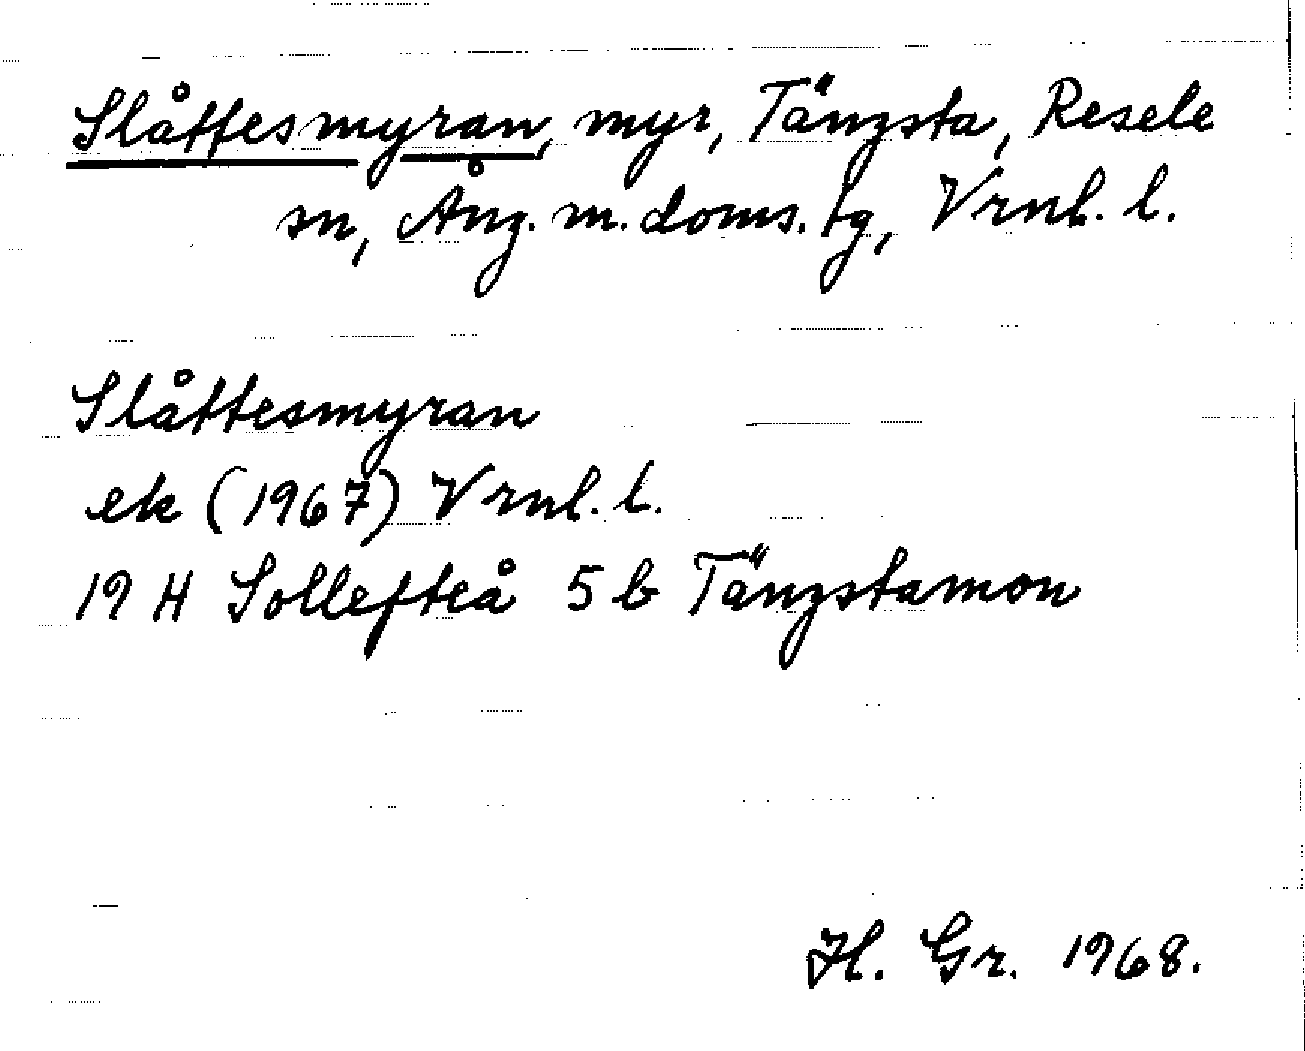 Slåttesmyran, myr, Tängsta, Resele
sn, Ång. m. doms. tg, Vrnl. l.
Slåttesmyran
ek (1967) Vrnl. l.
19 H Sollefteå 5 b Tängstamon
H. Gr. 1968.